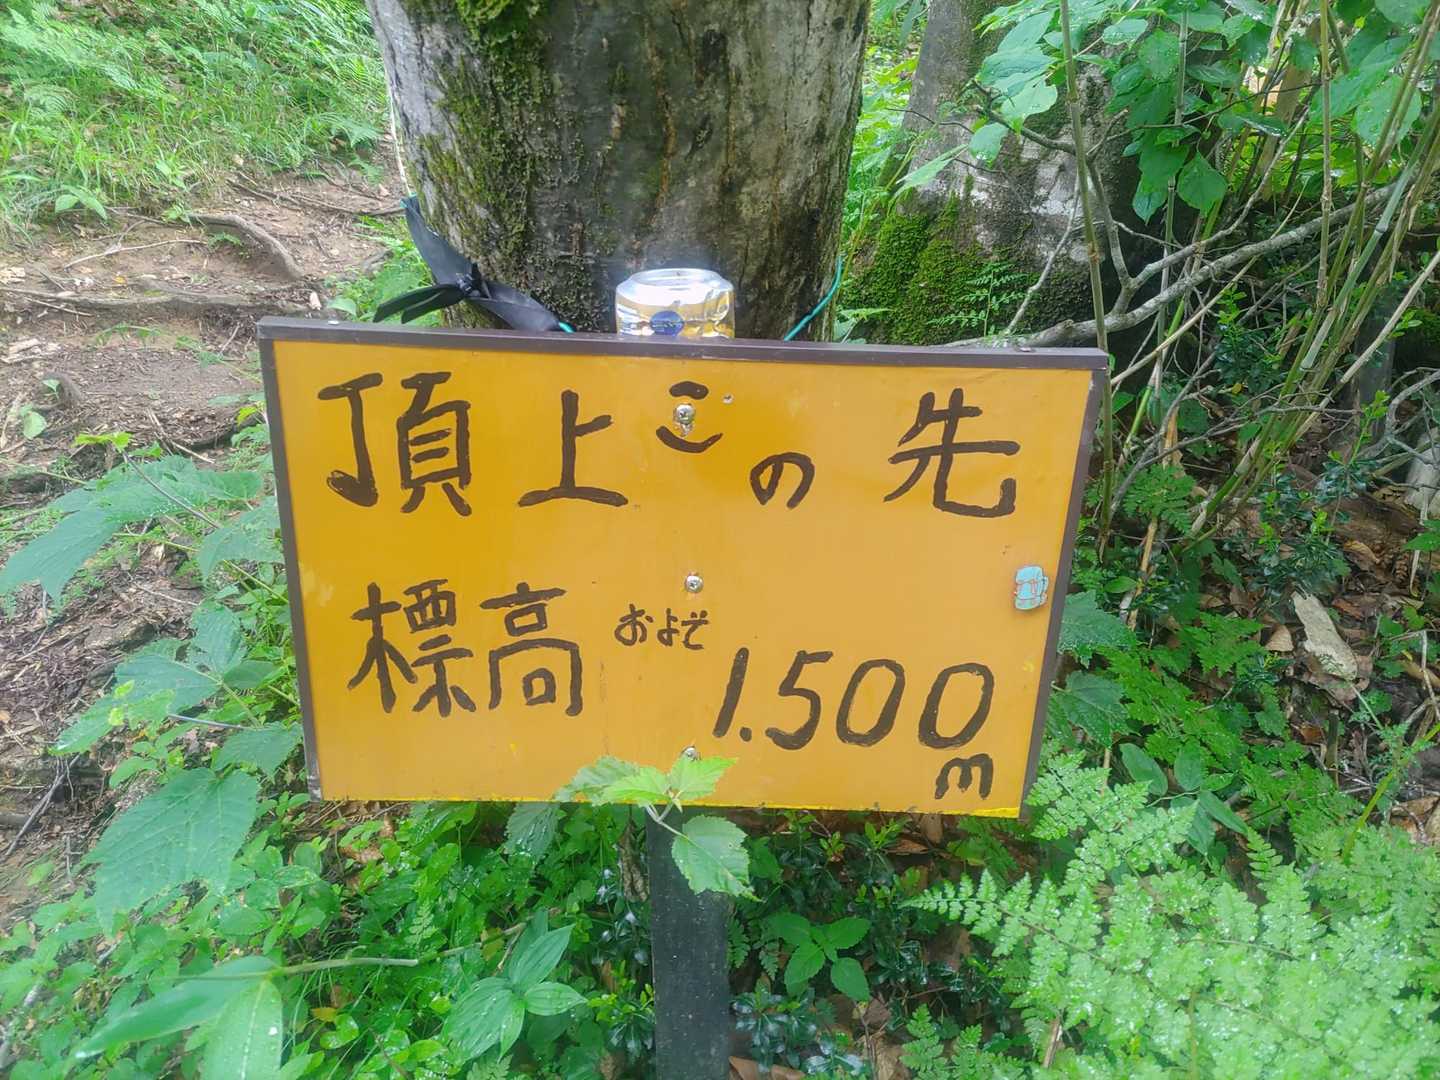 頂上この先
標高およそ1.500m